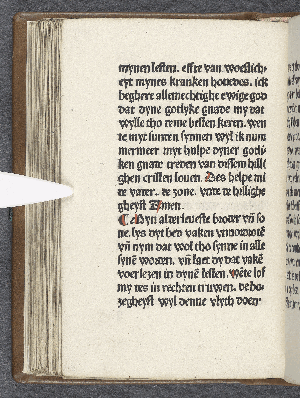 mynen lesten. effte van woestich-
eyt mynes kranken houedes. ick
beghere allemechtighe ewige god
dat dyne gotlyke gnade my dat
wylle tho eme besten keren. wen
te myt sunten synnen wyl ik num
mermeer myt hulpe dyner godli
ken gnade treden van dissem hilli
ghen cristen louen. Des helpe mi
de vater. de zone. vnde de hillighe
gheyst Amen.
Myn alderleueste broder vn̄ so
ne. lys dyt bed vaken
vn̄ nym dat wol tho synne in alle
synē worden. vn̄ laet dy dat vakē
voer lezen in dynē lesten. wete lof
my des in rechten truwen. de bo-
zegheyst wyl denne vlyth doen